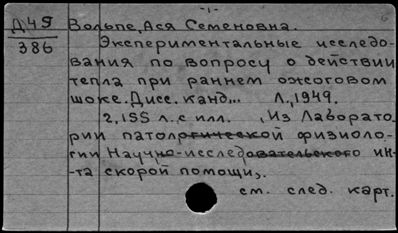 -1-
Д45 Вольпе, Ася Семеновна.
386 Экспериментальные исследо-
вания по вопросу о действии
тепла при раннем ожоговом
шоке. Дисс. канд... Л., 1949.
2, 155 л. с илл. , Из Лаборато.
рии патологической физиоло-
гии Научно-исследовательского ин-
-та скорой помощи,.
см. след. карт.